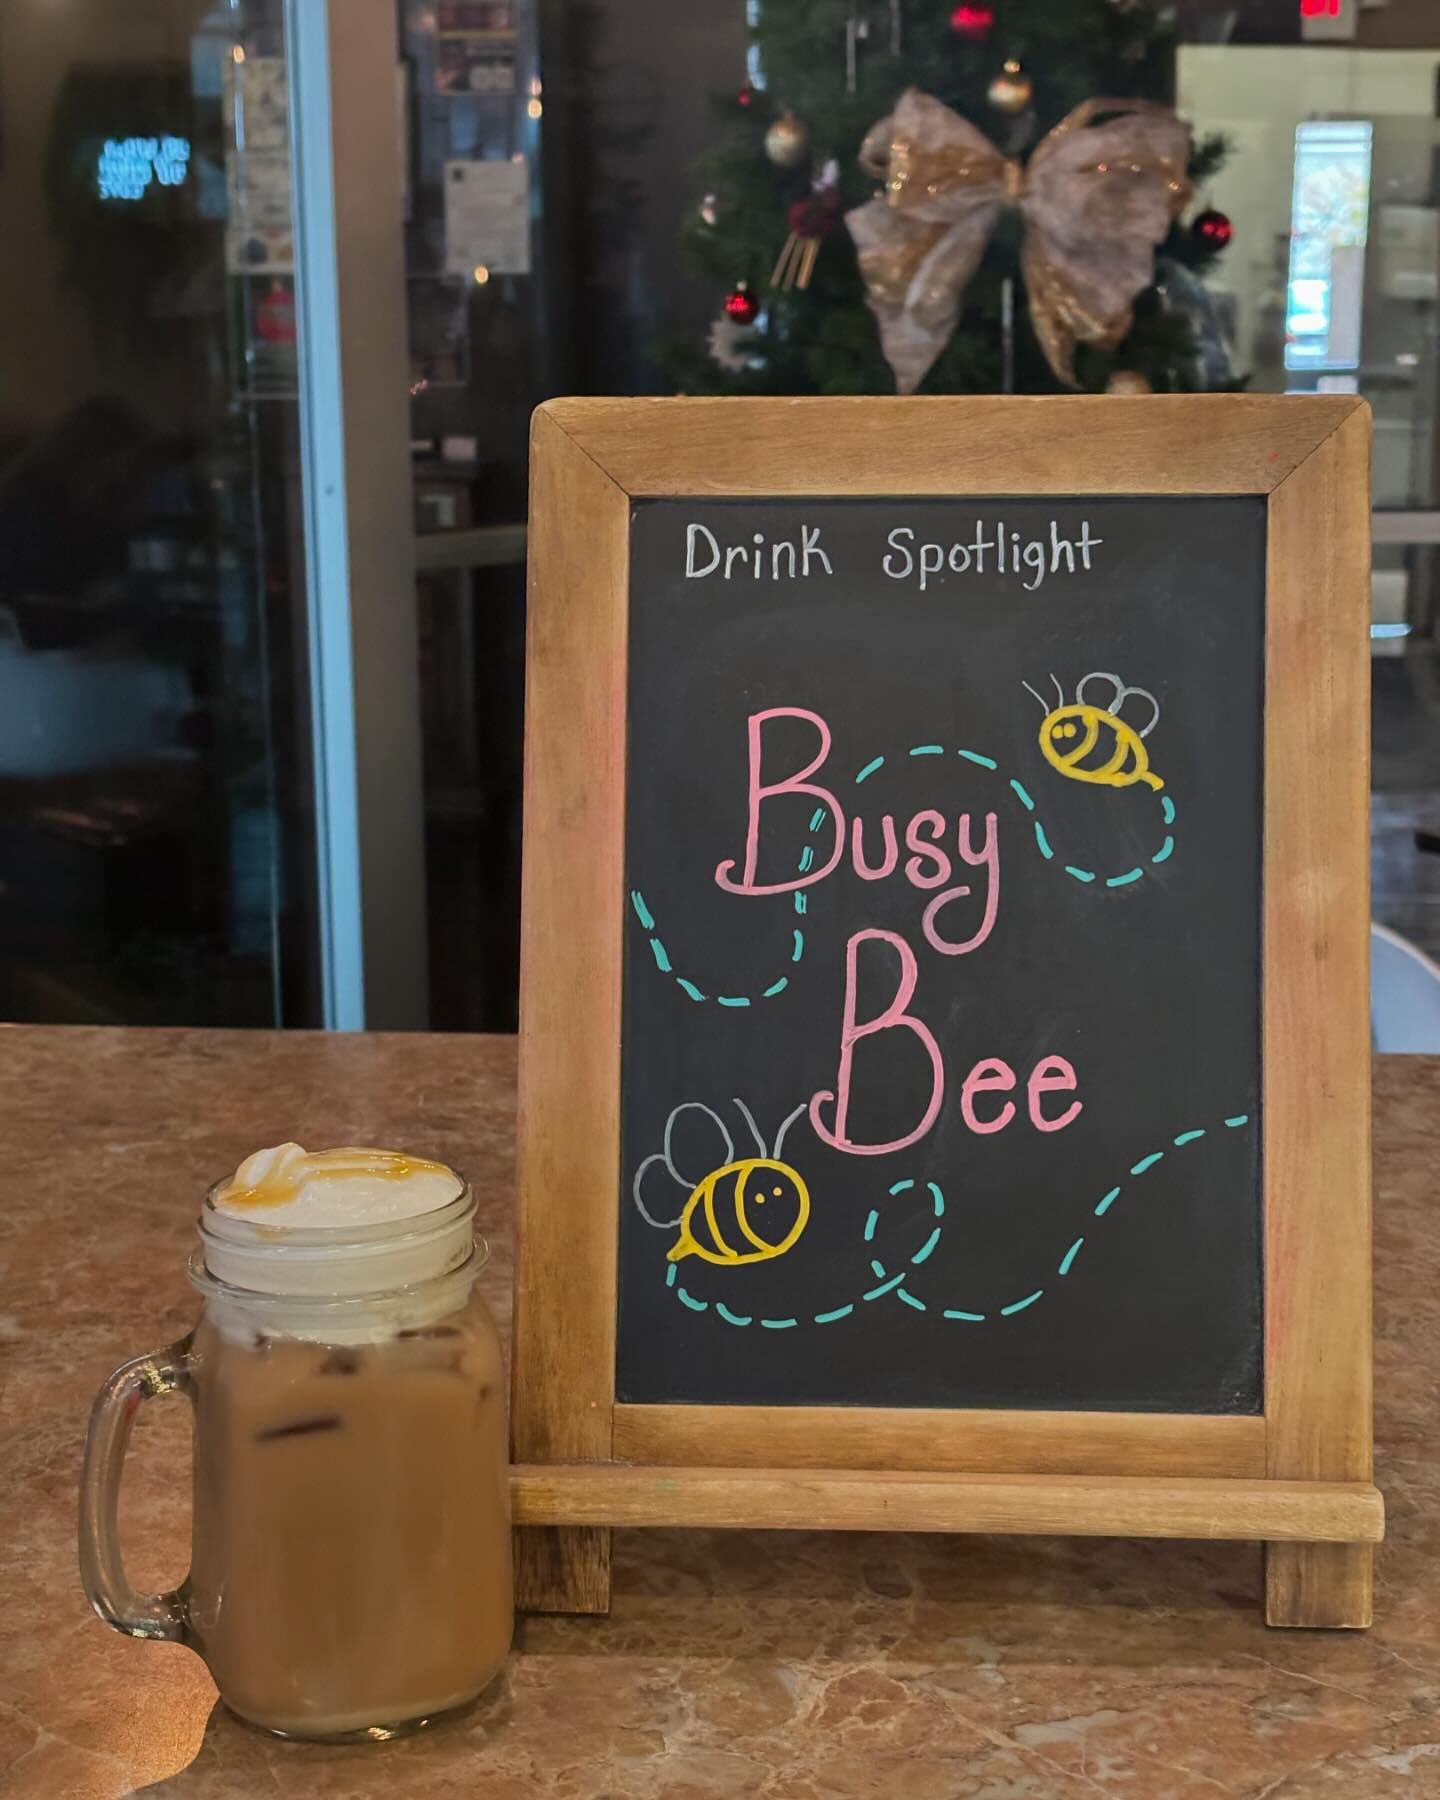 Drink Spotlight
Busy
Bee